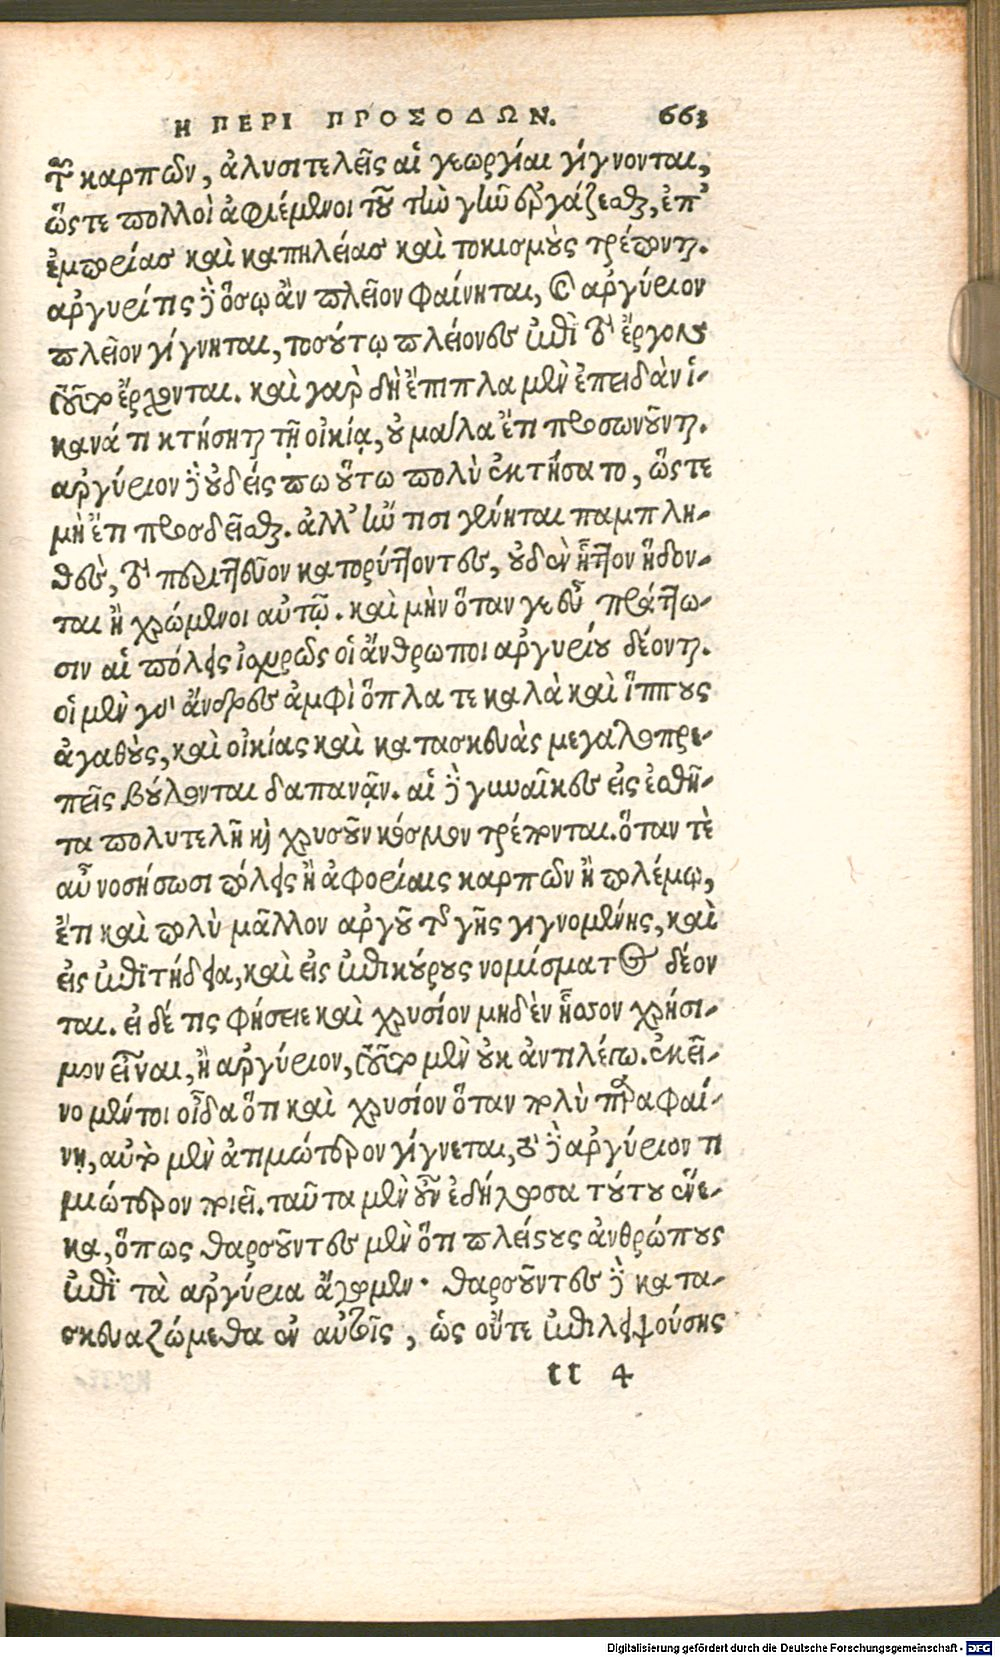 Η ΠΕΡΙ ΠΡΟΣΟΔΩΝ. 663
τῶν καρπῶν, ἀλυσιτελεῖς αἱ γεωργίαι γίγνονται,
ὥστε πολλοὶ ἀφιέμενοι τοῦ τὴν γῆν ἐργάζεσθαι, ἐπ’
ἐμπορίας καὶ καπηλείας καὶ τοκισμοὺς τρέπονται.
ἀργυρίτις δὲ ὅσῳ ἂν πλεῖον φαίνηται, καὶ ἀργύριον
πλεῖον γίγνηται, τοσούτῳ πλείονες ἐπὶ τὸ ἔργον
τοῦτο ἔρχονται. καὶ γὰρ δὴ ἔπιπλα μὲν ἐπειδὰν ἱ-
κανά τι κτήσηται τῇ οἰκίᾳ, οὐ μάλα ἔτι προσωνοῦνται.
ἀργύριον δὲ οὐδείς πω οὕτω πολὺ ἐκτήσατο, ὥστε
μὴ ἔτι προσδεῖσθαι. ἀλλ’ ἤν τισι γένηται παμπλη-
θὲς, τὸ περιττεῦον κατορύττοντες, οὐδὲν ἧττον ἥδον-
ται ἢ χρώμενοι αὐτῷ. καὶ μὴν ὅταν γε εὖ πράττω-
σιν αἱ πόλεις ἰσχυρῶς οἱ ἄνθρωποι ἀργυρίου δέονται.
οἱ μὲν γὰρ ἄνδρες ἀμφὶ ὅπλα τε καλὰ καὶ ἵππους
ἀγαθοὺς, καὶ οἰκίας καὶ κατασκευὰς μεγαλοπρε-
πεῖς βούλονται δαπανᾷν. αἱ δὲ γυναῖκες εἰς ἐσθῆ-
τα πολυτελῆ καὶ χρυσοῦν κόσμον τρέπονται. ὅταν τὲ
αὖ νοσήσωσι πόλεις ἢ ἀφορίαις καρπῶν ἢ πολέμῳ,
ἔτι καὶ πολὺ μᾶλλον ἀργοῦ τῆς γῆς γιγνομένης, καὶ
εἰς ἐπιτήδεια, καὶ εἰς ἐπικούρους νομίσματος δέον
ται. εἰ δέ τις φήσειε καὶ χρυσίον μηδὲν ἧσσον χρήσι-
μον εἶναι, ἢ ἀργύριον, τοῦτο μὲν οὐκ ἀντιλέγω. ἐκεῖ-
νο μέντοι οἶδα ὅτι καὶ χρυσίον ὅταν πολὺ παραφαί-
νῃ, αὐτὸ μὲν ἀτιμώτερον γίγνεται, τὸ δὲ ἀργύριον τι
μιώτερον ποιεῖ. ταῦτα μὲν οὖν ἐδήλωσα τούτου ἕνε-
κα, ὅπως θαρσοῦντες μὲν ὅτι πλείστους ἀνθρώπους
ἐπὶ τὰ ἀργύρια ἄγωμεν· θαρσοῦντες δὲ κατα-
σκευαζώμεθα ἐν αὐτοῖς, ὡς οὔτε ἐπιλειψούσης
tt 4
Digitalisierung gefördert durch die Deutsche Forschungsgemeinschaft - DFG